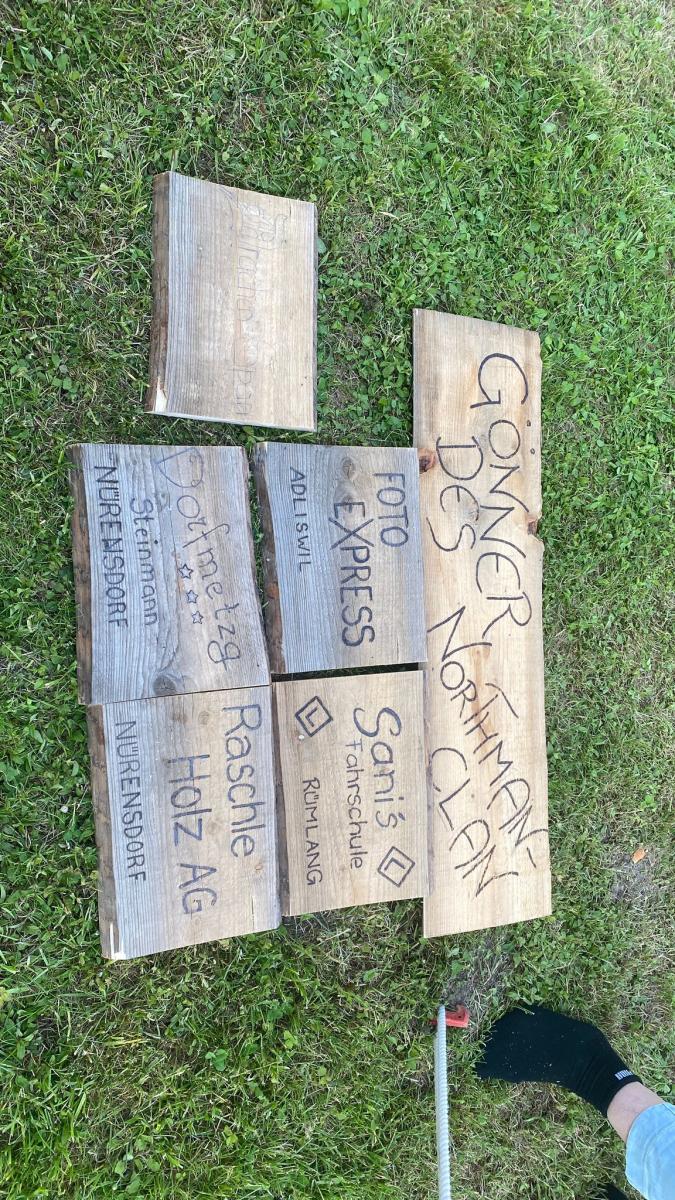 GÖNNER
DES NORTHMAN-
CLAN
FOTO
EXPRESS
ADLISWIL
Sani's
Fahrschule
L
L
RÜMLANG
Dorfmetzg
Steinmann
NÜRENSDORF
Raschle
Holz AG
NÜRENSDORF